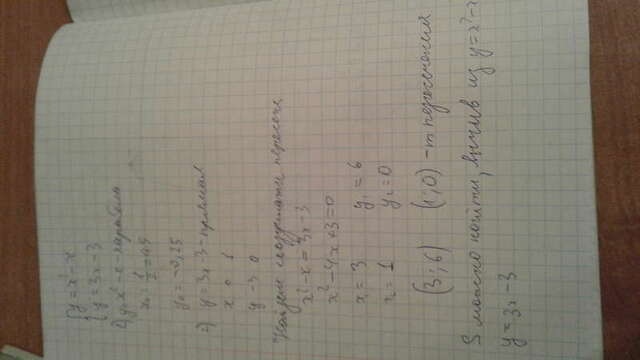 {y = x² - x
{y = 3x - 3
1) y = x² - x - парабола
x₀ = 1/2 = 0,5
y₀ = -0,25
2) y = 3x - 3 - прямая
x 0 1
y -3 0
Найдем координаты пересеч
x² - x = 3x - 3
x² - 4x + 3 = 0
x = 3 y₁ = 6
x = 1 y₂ = 0
(3; 6) (1; 0) - т пересечения
S можно найти, вычив из y = x² - x
y = 3x - 3